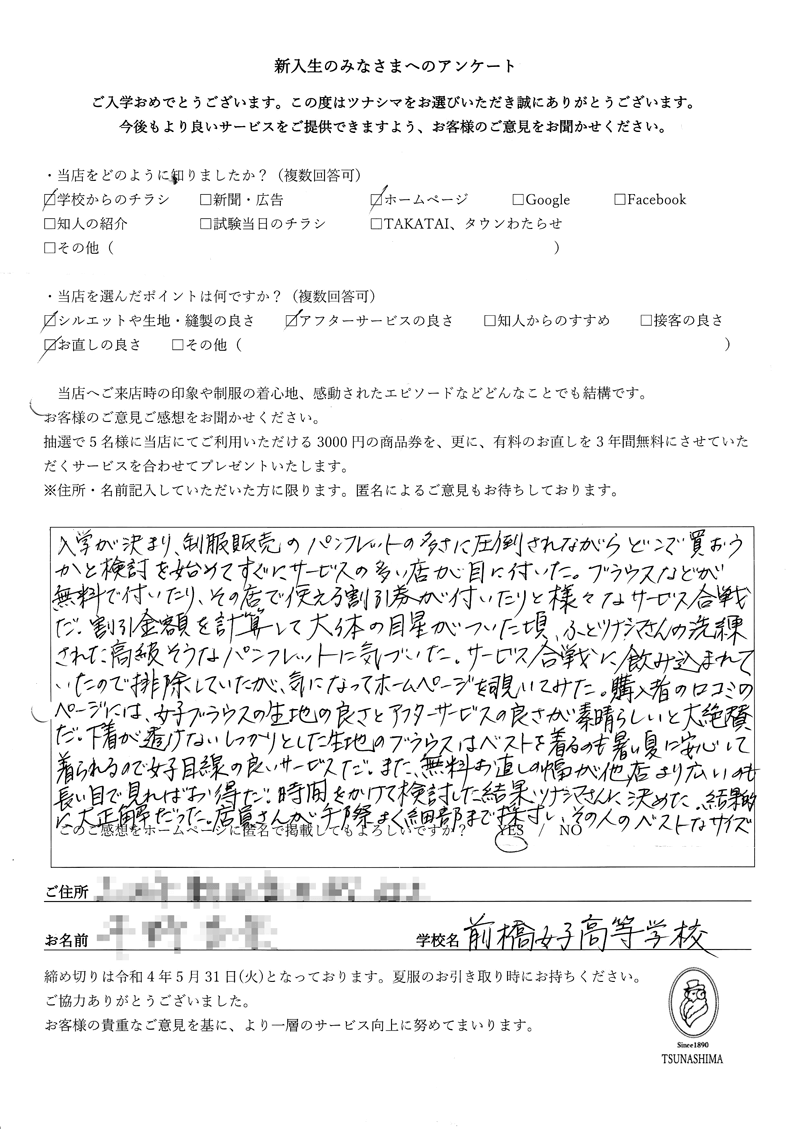 新入生のみなさまへのアンケート
ご入学おめでとうございます。この度はツナシマをお選びいただき誠にありがとうございます。
今後もより良いサービスをご提供できますよう、お客様のご意見をお聞かせください。
・当店をどのように知りましたか？（複数回答可）
☑学校からのチラシ　□新聞・広告　☑ホームページ　□Google　□Facebook
□知人の紹介　□試験当日のチラシ　□TAKATAI、タウンわたらせ
□その他（　）
・当店を選んだポイントは何ですか？（複数回答可）
☑シルエットや生地・縫製の良さ　☑アフターサービスの良さ　□知人からのすすめ　□接客の良さ
☑お直しの良さ　□その他（　）
当店へご来店時の印象や制服の着心地、感動されたエピソードなどどんなことでも結構です。
お客様のご意見ご感想をお聞かせください。
抽選で5名様に当店にてご利用いただける3000円の商品券を、更に、有料のお直しを3年間無料にさせていた
だくサービスを合わせてプレゼントいたします。
※住所・名前記入していただいた方に限ります。匿名によるご意見もお待ちしております。
入学が決まり、制服販売のパンフレットの多さに圧倒されながらどこで買おう
かと検討を始めてすぐにサービスの多い店が目に付いた。ブラウスなどが
無料で付いたり、その店で使える割引券が付いたりと様々なサービス合戦
だ。割引金額を計算して大体の目星がついた頃、ふとツナシマさんの洗練
された高級そうなパンフレットに気づいた。サービス合戦に飲み込まれて
いたので排除していたが、気になってホームページを覗いてみた。購入者の口コミの
ページには、女子ブラウスの生地の良さとアフターサービスの良さが素晴らしいと大絶賛
だ。下着が透けないしっかりとした生地のブラウスはベストを着るのも暑い夏に安心して
着られるので女子目線の良いサービスだ。また、無料お直しの幅が他店より広いのも
長い目で見ればお得だ。時間をかけて検討した結果ツナシマさんに決めた。結果的
に大正解だった。店員さんが手際よく細部まで採寸し、その人のベストなサイズ
このご感想をホームページに匿名で掲載してもよろしいですか？　YES　/　NO
ご住所
お名前
学校名 前橋女子高等学校
締め切りは令和4年5月31日(火)となっております。夏服のお引き取り時にお持ちください。
ご協力ありがとうございました。
お客様の貴重なご意見を基に、より一層のサービス向上に努めてまいります。
Since1890
TSUNASHIMA